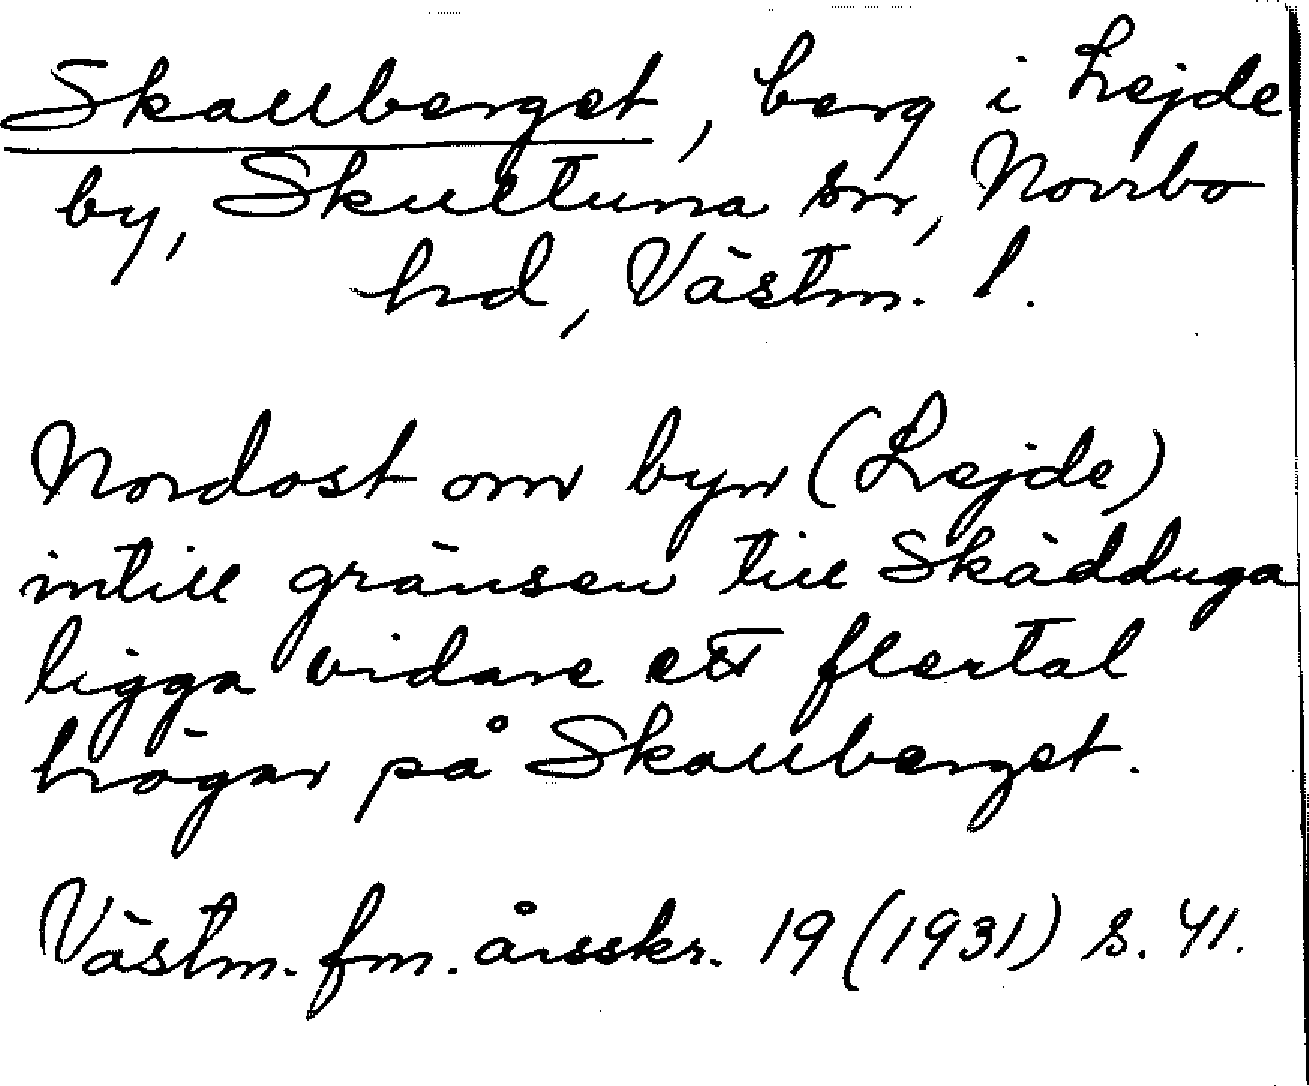 Skallberget, berg i Lejde
by, Skultuna sn, Norrbo
hd, Västm. l.
Nordost om byn (Lejde)
intill gränsen till Skädduga
ligga vidare ett flertal
högar på Skallberget.
Västm. fm. årsskr. 19 (1931) s. 41.